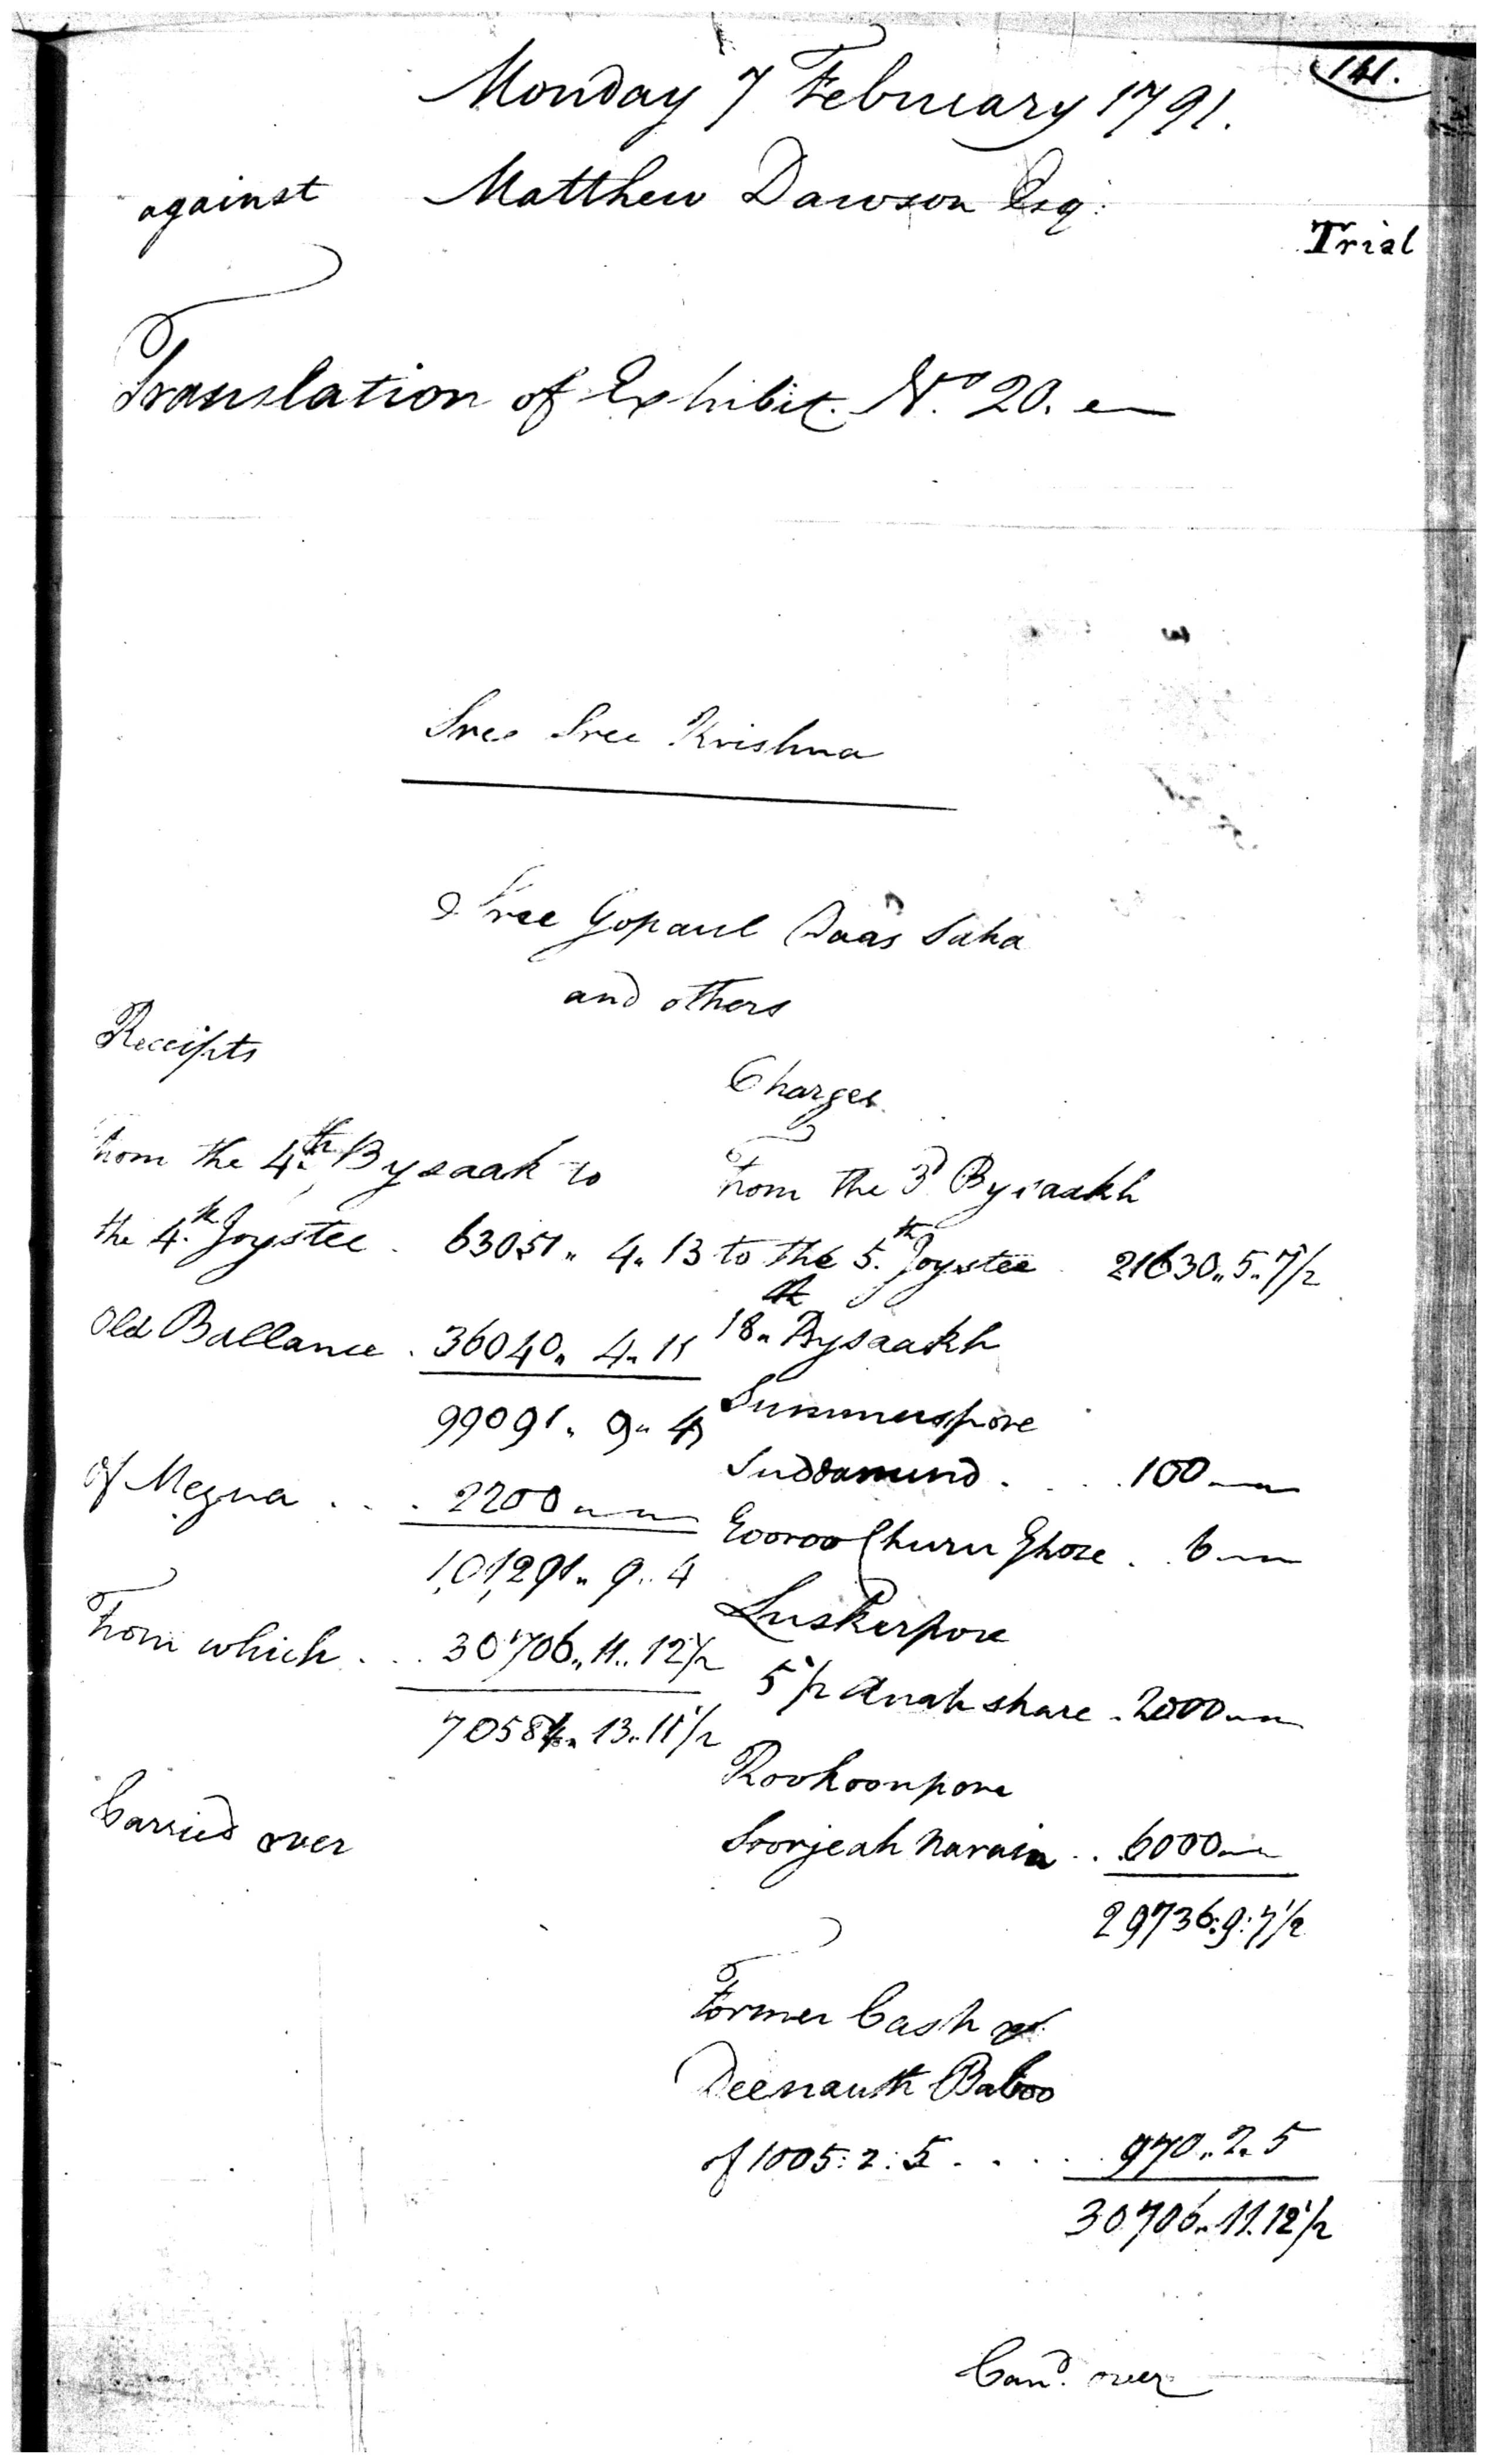 141.
Monday 7 February 1791.
against Matthew Dawson Esq:
Trial
Translation of Exhibit. No. 20.
Sree Sree Krishna
Sree Gopaul Daas Saha
and others
Receipts
Charges.
From the 4th Bysaak to
the 4th Joystee . 63051 „ 4 „ 13
Old Ballance . 36040 „ 4 „ 11
99091 „ 9 „ 4
Of Megna . . . 2200 „ „
1,01,291 „ 9 „ 4
From which . . . 30706 „ 11 „ 12 1/2
70584 „ 13 „ 11 1/2
Carried over
From the 3d Bysaakh
to the 5th Joystee . 21630 „ 5 „ 7 1/2
18th Bysaakh
Summerspore
Suddanund . . . 100 „ „
Gooroo Churn Ghose . . 6 „ „
Luskerpore
5 1/2 Anah share . 2000 „ „
Rookoonpore
Soorjeah Narain . . 6000 „ „
29736 : 9 : 7 1/2
Former Cash of
Deenauth Baboo
of 1005 : 2 : 5 . . . . 970 „ 2 „ 5
30706 „ 11 „ 12 1/2
Card. over